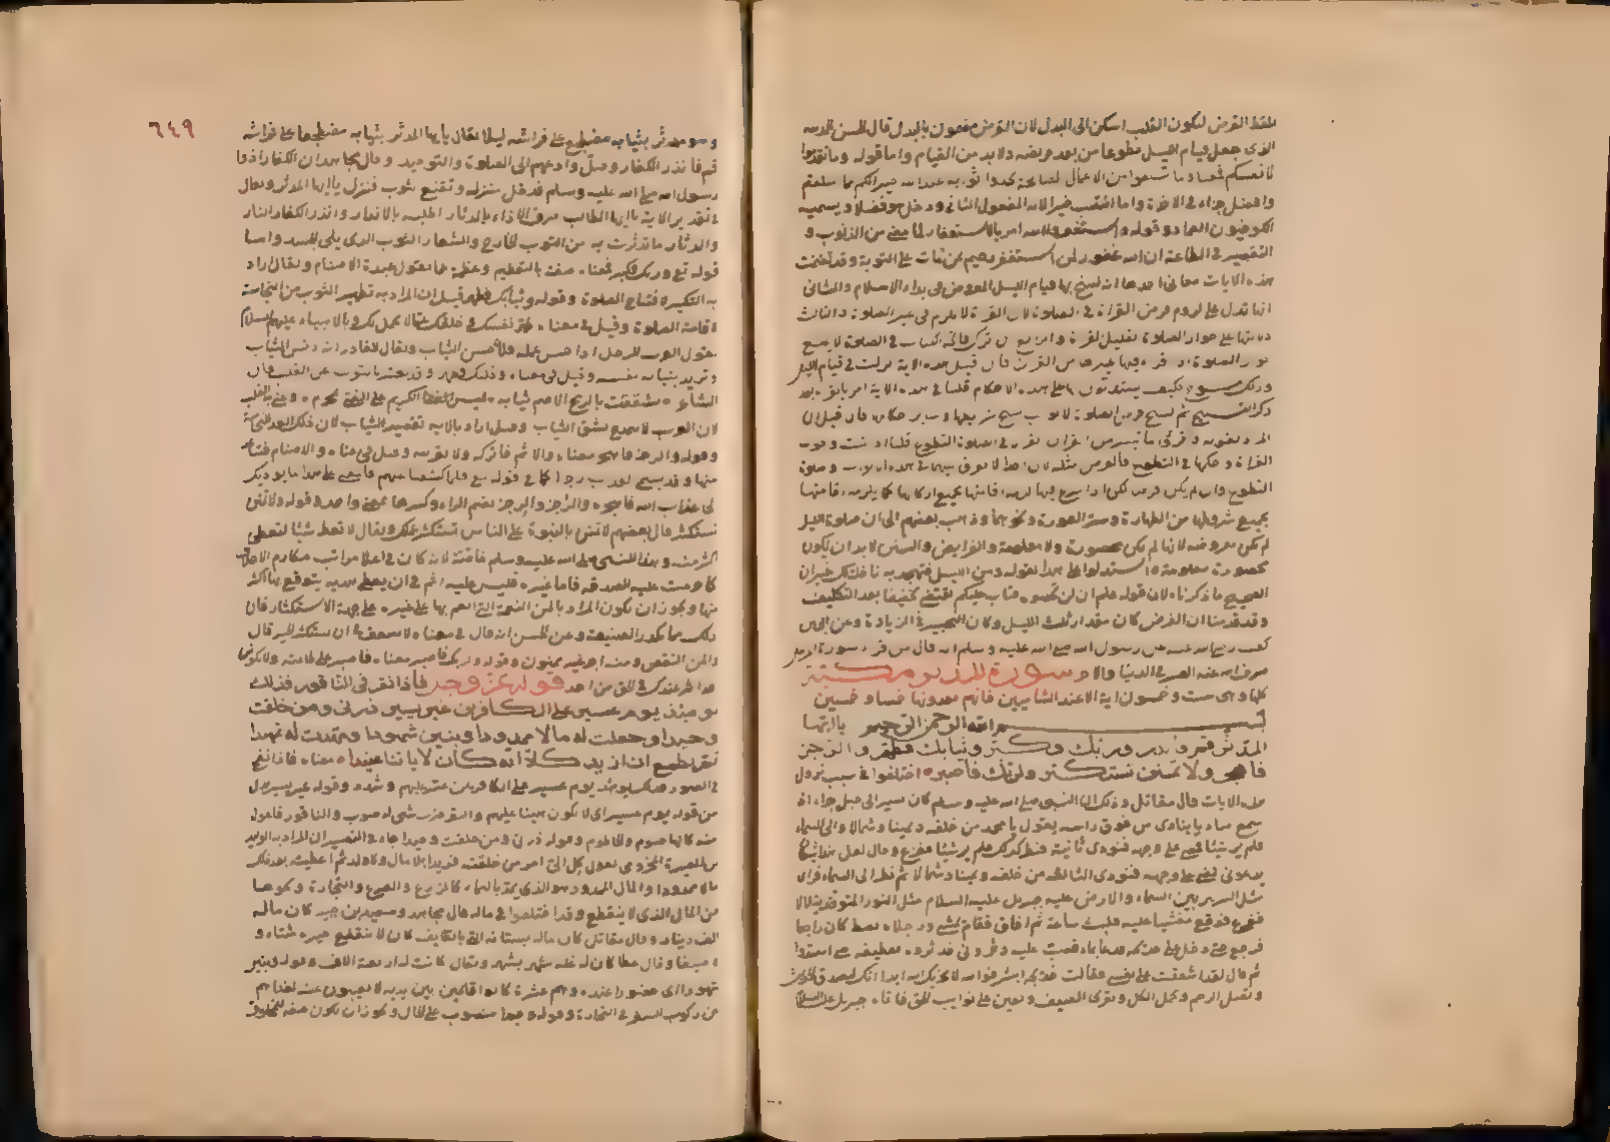 بلفظ القرض لتكون القلب اسكن الى البدل لان القرض مضمون بالبدل قال الحسن
الذى جعل قيام الليل تطوعا من بعد فريضه ولا بد من القيام واما قوله وما تقدموا
لانفسكم فمعناه ما تسلفوا من الاعمال الصالحة تجدوا ثوابه عند الله خير الكم مما
وافضل جزاء فى الاخرة وانما انتصب خيرا لانه المفعول الثانى ودخل هو فصلا ويسميه
الكوفيون العماد وقوله واستغفروا الله امر بالاستغفار لما مضى من الذنوب و
التقصير فى الطاعة ان الله غفور لمن استغفر رحيم بمن مات على التوبة وقد تضمنت
هذه الايات معانى احدها انه نسخ بها قيام الليل المفروض فى بداء الاسلام والثانى
انها تدل على لزوم فرض القراة فى الصلوة لان القراة لا تلزم فى غير الصلوة والثالث
دلالتها على جواز الصلوة بقليل القراة والرابع ان ترك فاتحة الكتاب فى الصلوة لا يمنع
جواز الصلوة اذا قرء فيها غيرها من القران فان قيل هذه الاية نزلت فى قيام الليل
وذلك منسوخ فكيف يستدلون بها على هذه الاحكام قلنا فى هذه الاية امر بالقراة بعد
ذكر التسبيح ثم نسخ فرض الصلوة لا يوجب نسخ شرايطها وساير احكامها فان قيل ان
المراد بقوله فاقرؤا ما تيسر من القران القراة فى صلوة التطوع قلنا اذا ثبت وجوب
القراة وحكمها فى التطوع فالفرض مثله لان احدا لا يفرق بينهما فى هذه وصلوة
التطوع وان لم يكن فرضا لكن اذا شرع فيها لزمه اقامتها بجميع اركانها كما يلزمه اقامتها
بجميع شروطها من الطهارة وستر العورة ونحوهما وذهب بعضهم الى ان صلوة الليل
لم تكن مفروضة لانها لم تكن محصورة ولا معلومة والفرايض والسنن لا بد ان تكون
محصورة معلومة واستدلوا على هذا بقوله ومن الليل فتهجد به نافلة لك غير ان
الصحيح ما ذكرناه لان قوله علم ان لن تحصوه فتاب عليكم يقتضى تخفيفا بعد التكليف
وقد قدمنا ان الفرض كان مقدار ثلث الليل وكان التخيير فى الزيادة وعن ابى بن
كعب رضى الله عنه عن رسول الله صلى الله عليه وسلم انه قال من قرء سورة المزمل
صرف الله عنه العسر فى الدنيا والاخرة سورة المدثر مكية
كلها وهى ست وخمسون اية الا عند الشاميين فانهم يعدونها خمسا وخمسين
بسم الله الرحمن الرحيم يا ايها
المدثر قم فانذر وربك فكبر وثيابك فطهر والرجز
فاهجر ولا تمنن تستكثر ولربك فاصبر اختلفوا فى سبب نزول
هذه الايات قال مقاتل وذلك ان النبى صلى الله عليه وسلم كان يسير الى جبل حراء اذ
سمع مناديا ينادى من فوق راسه يقول يا محمد من خلفه ويمينا وشمالا والى السماء
فلم ير شيئا فمضى على وجهه فنودى ثانية فنظر كذلك فلم ير شيئا ففزع وقال لعل هذا
يدعونى فمضى على وجهه فنودى الثالثة من خلفه ويمينا وشمالا ثم نظر الى السماء فراى
مثل السرير بين السماء والارض عليه جبريل عليه السلام مثل النور المتوقد يتلالا
ففزع فوقع مغشيا عليه فلبث ساعة ثم افاق فقام يمشى ورجلاه تصطكان راجعا
فرجع حتى دخل على خديجة فدعا بماء فصبت عليه وقال دثرونى فدثروه بقطيفة حتى استدفا
ثم قال لقد اشفقت على نفسى فقالت خديجة ابشر فوالله لا يخزيك الله ابدا انك لتصدق الحديث
وتصل الرحم وتحمل الكل وتقرى الضيف وتعين على نوايب الحق فاتاه جبريل عليه السلام
٦٤٩
وهو متدثر بثيابه مضطجع على فراشه ليلا فقال يا ايها المدثر بثيابه مضطجعا على فراشه
قم فانذر الكفار وصل وادعهم الى الصلوة والتوحيد وقال مجاهد ان الكفار اذوا
رسول الله صلى الله عليه وسلم فدخل منزله وتقنع بثوب فنزل يا ايها المدثر ويقال
فى تقدير الاية يا ايها الطالب صرف الاذاء بالدثار اطلبه بالانذار وانذر الكفار النار
والدثار ما تدثرت به من الثوب الخارج والشعار الثوب الذى يلى الجسد واما
قوله تع وربك فكبر فمعناه صفه بالتعظيم وعظمه عما يقول عبدة الاصنام ويقال اراد
به التكبير لافتتاح الصلوة وقوله وثيابك فطهر قيل ان المراد به تطهير الثوب من النجاسة
لاقامة الصلوة وقيل فى معناه طهر نفسك وخلقك عما لا يجمل بك فى بالانبياء عليهم السلام
يقول العرب للرجل اذا حسن عمله فلان حسن الثياب ويقال للغادر انه دنس الثياب
وتريد بثيابه نفسه وقيل فى معناه وقلبك فطهر وقد يعبر بالثوب عن القلب قال
الشاعر فشككت بالرمح الاصم ثيابه ليس الكريم على القنا بمحرم وعنى به القلب
لان العرب لا تمدح بشق الثياب وقيل اراد بالاية تقصير الثياب لان ذلك ابعد
وقوله والرجز فاهجر معناه والاثم فاتركه ولا تقربه وقيل فى معناه والاصنام فتباعد
منها وقد يسمى العذاب رجزا كما فى قوله تع فلما كشفنا عنهم فالمعنى على هذا ما يوديك
الى عذاب الله فاهجره والرجز والرجز بضم الراء وكسرها بمعنى واحد وقوله ولا تمنن
تستكثر قال بعضهم لا تمنن بالنبوة على الناس تستكثر عملك ويقال لا تعط شيئا لتعطى
اكثر منه وهذا للنبى صلى الله عليه وسلم خاصة لانه كان فى اعلا مراتب مكارم الاخلاق
كما حرمت عليه الصدقة فاما غيره فليس عليه اثم فى ان يعطى هدية يتوقع بها اكثر
منها ويجوز ان يكون المراد بالمن النعمة التى انعم بها على غيره على جهة الاستكثار فان
ذلك مما يكدر الصنيعة وعن الحسن انه قال فى معناه لا تضعف فى ان تستكثر الخير قال
والمن النقص ومنه اجر غير ممنون وقوله ولربك فاصبر معناه فاصبر على طاعته
قوله عز وجل فاذا نقر فى الناقور فذلك
يومئذ يوم عسير على الكافرين غير يسير ذرنى ومن خلقت
وحيدا وجعلت له مالا ممدودا وبنين شهودا ومهدت له تمهيدا
ثم يطمع ان ازيد كلا انه كان لاياتنا عنيدا معناه فاذا نفخ
فى الصور فذلك يومئذ يوم عسير على الكافرين عقوبتهم وشدة وقوله غير يسير بدل
من قوله يوم عسير اى لا يكون هينا عليهم والنقر صوت والناقور فاعول
منه كالهاضوم والحاطوم وقوله ذرنى ومن خلقت وحيدا جاء فى التفسير ان المراد به الوليد
بن المغيرة المخزومى يقول كل الى امر من خلقته فريدا بلا مال ولا ولد ثم اعطيته بعد ذلك
مالا ممدودا والمال الممدود هو الذى يمد بالنماء كالزرع والضرع والتجارة ونحوها
من المال الذى لا ينقطع وقد اختلفوا فى ماله قال مجاهد وسعيد بن جبير كان ماله
الف دينار وقال مقاتل كان ماله بستانه الذى بالطايف كان لا ينقطع خيره شتاء و
صيفا وقال عطا كان له غلة شهر بشهر ويقال كانت له اربعة الاف وقوله وبنين
شهودا اى حضورا عنده وهم عشرة كانوا قائمين بين يديه لا يغيبون عنه لغناهم
عن ركوب السفر فى التجارة وقوله وحيدا منصوب على الحال ويجوز ان يكون صفة للمخلوق